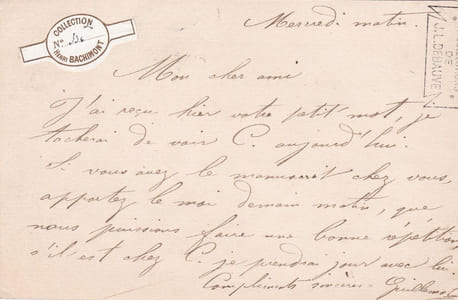 COLLECTION
N°
HENRI BACHIMONT
DE
J.L. DEBAUVE
Mercredi matin.
Mon cher ami
J'ai reçu hier votre petit mot, je
tacherai de voir C. aujourd'hui.
Si vous avez le manuscrit chez vous,
apportez le moi demain matin, que
nous puissions faire une bonne répétition
s'il est chez C. je prendrai jour avec lui.
Compliments sincères.